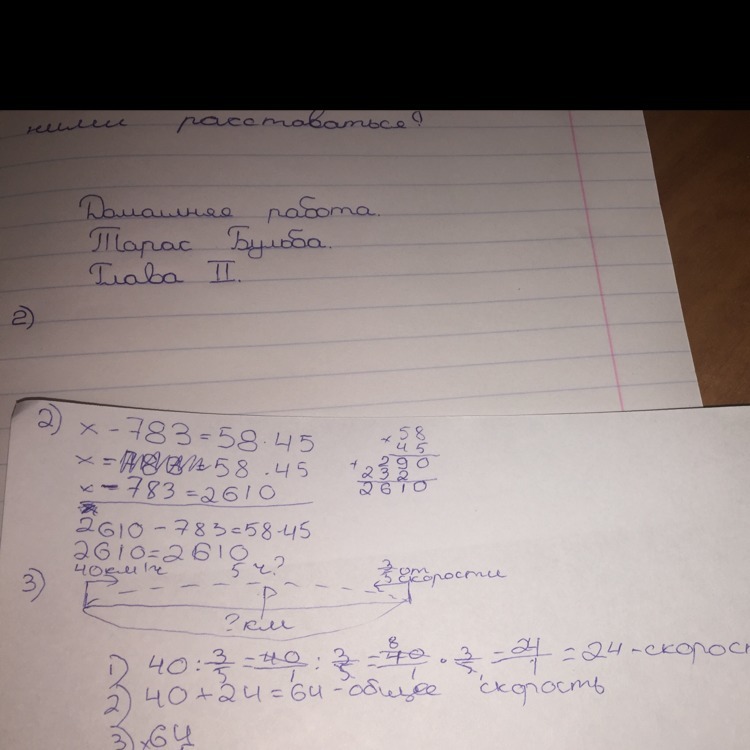 ними расставаться?
Домашняя работа.
Тарас Бульба.
Глава II.
2)
2) x - 783 = 58 · 45
x = 58 · 45
x - 783 = 2610
2610 - 783 = 58 · 45
2610 = 2610
× 58
45
+ 290
232
2610
3) 40 км/ч 5 ч? 3/5 от скорости
? км
1) 40 : 3/5 = 40/1 : 3/5 = 40/1 · 3/5 = 24/1 = 24 - скорост
2) 40 + 24 = 64 - общее скорость
3) × 64